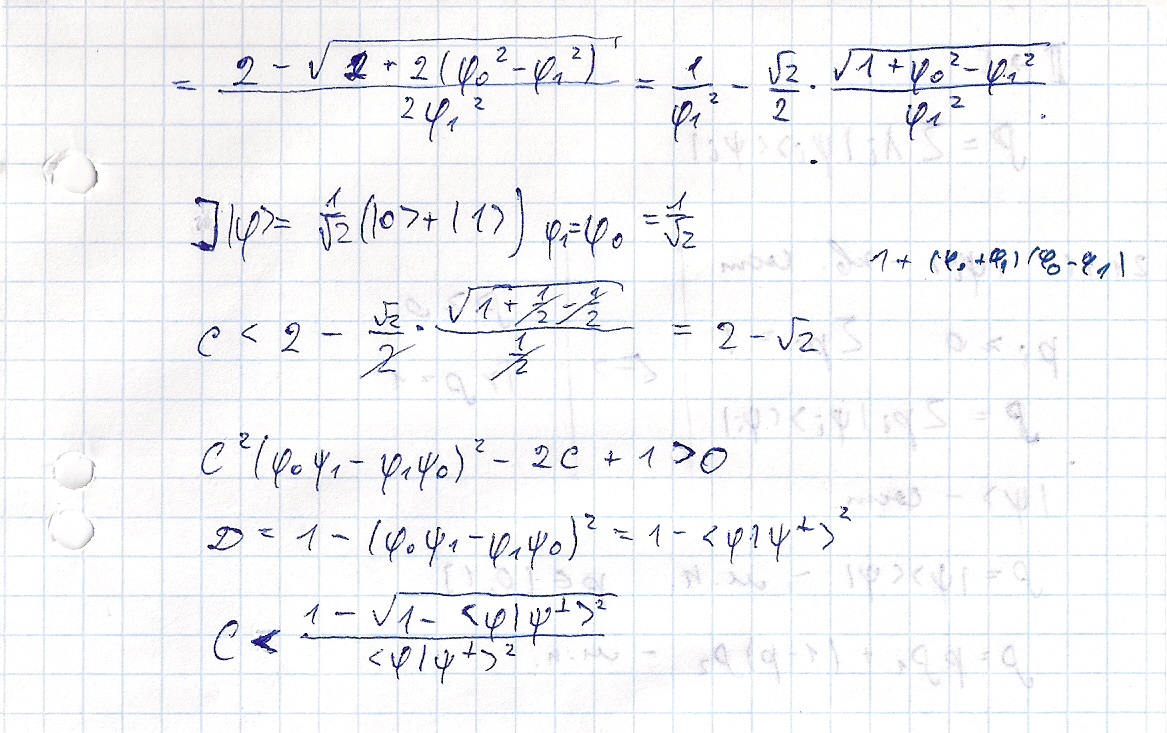 = (2 - √(2 + 2(φ₀² - φ₁²))) / (2φ₁²) = 1/φ₁² - √2/2 · √(1 + φ₀² - φ₁²) / φ₁²
] |φ> = 1/√2 (|0> + |1>) φ₁ = φ₀ = 1/√2
1 + (φ₀ + φ₁)(φ₀ - φ₁)
C < 2 - √2/2 · √(1 + 1/2 - 1/2) / (1/2) = 2 - √2
C² (φ₀ψ₁ - φ₁ψ₀)² - 2C + 1 > 0
D = 1 - (φ₀ψ₁ - φ₁ψ₀)² = 1 - <φ|ψ⊥>²
C < (1 - √(1 - <φ|ψ⊥>²)) / <φ|ψ⊥>²